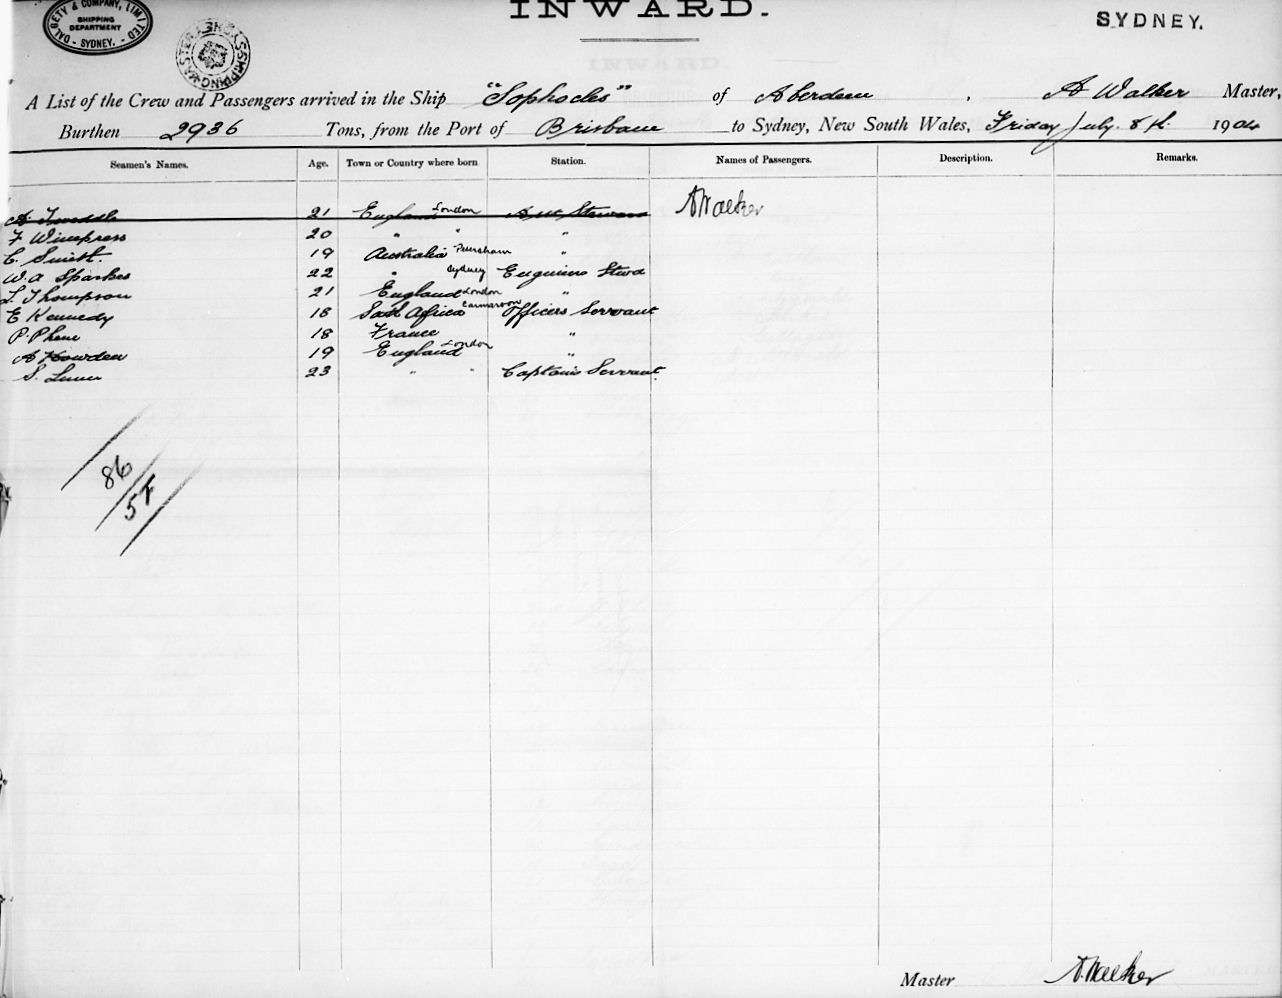 INWARD.
DALGETY & COMPANY, LIMITED
SHIPPING
DEPARTMENT
- SYDNEY. -
SYDNEY.
A List of the Crew and Passengers arrived in the Ship "Sophocles" of Aberdeen, A Walker Master,
Burthen 2936 Tons, from the Port of Brisbane to Sydney, New South Wales, Friday July. 8th. 1904
Seamen's Names. Age. Town or Country where born Station. Names of Passengers. Description. Remarks.
A. Tweddle 21 England London Steward A Walker
F Wimpress 20 " " "
C. Smith. 19 Australia "
W. A Sparkes 22 " Sydney Engineers Stwd
L Thompson 21 England London "
E Kennedy 18 South Africa Officers Servant
P. Phene 18 France "
A Howden 19 England London "
S. 23 " " Captains Servant.
86
54
Master A. Walker